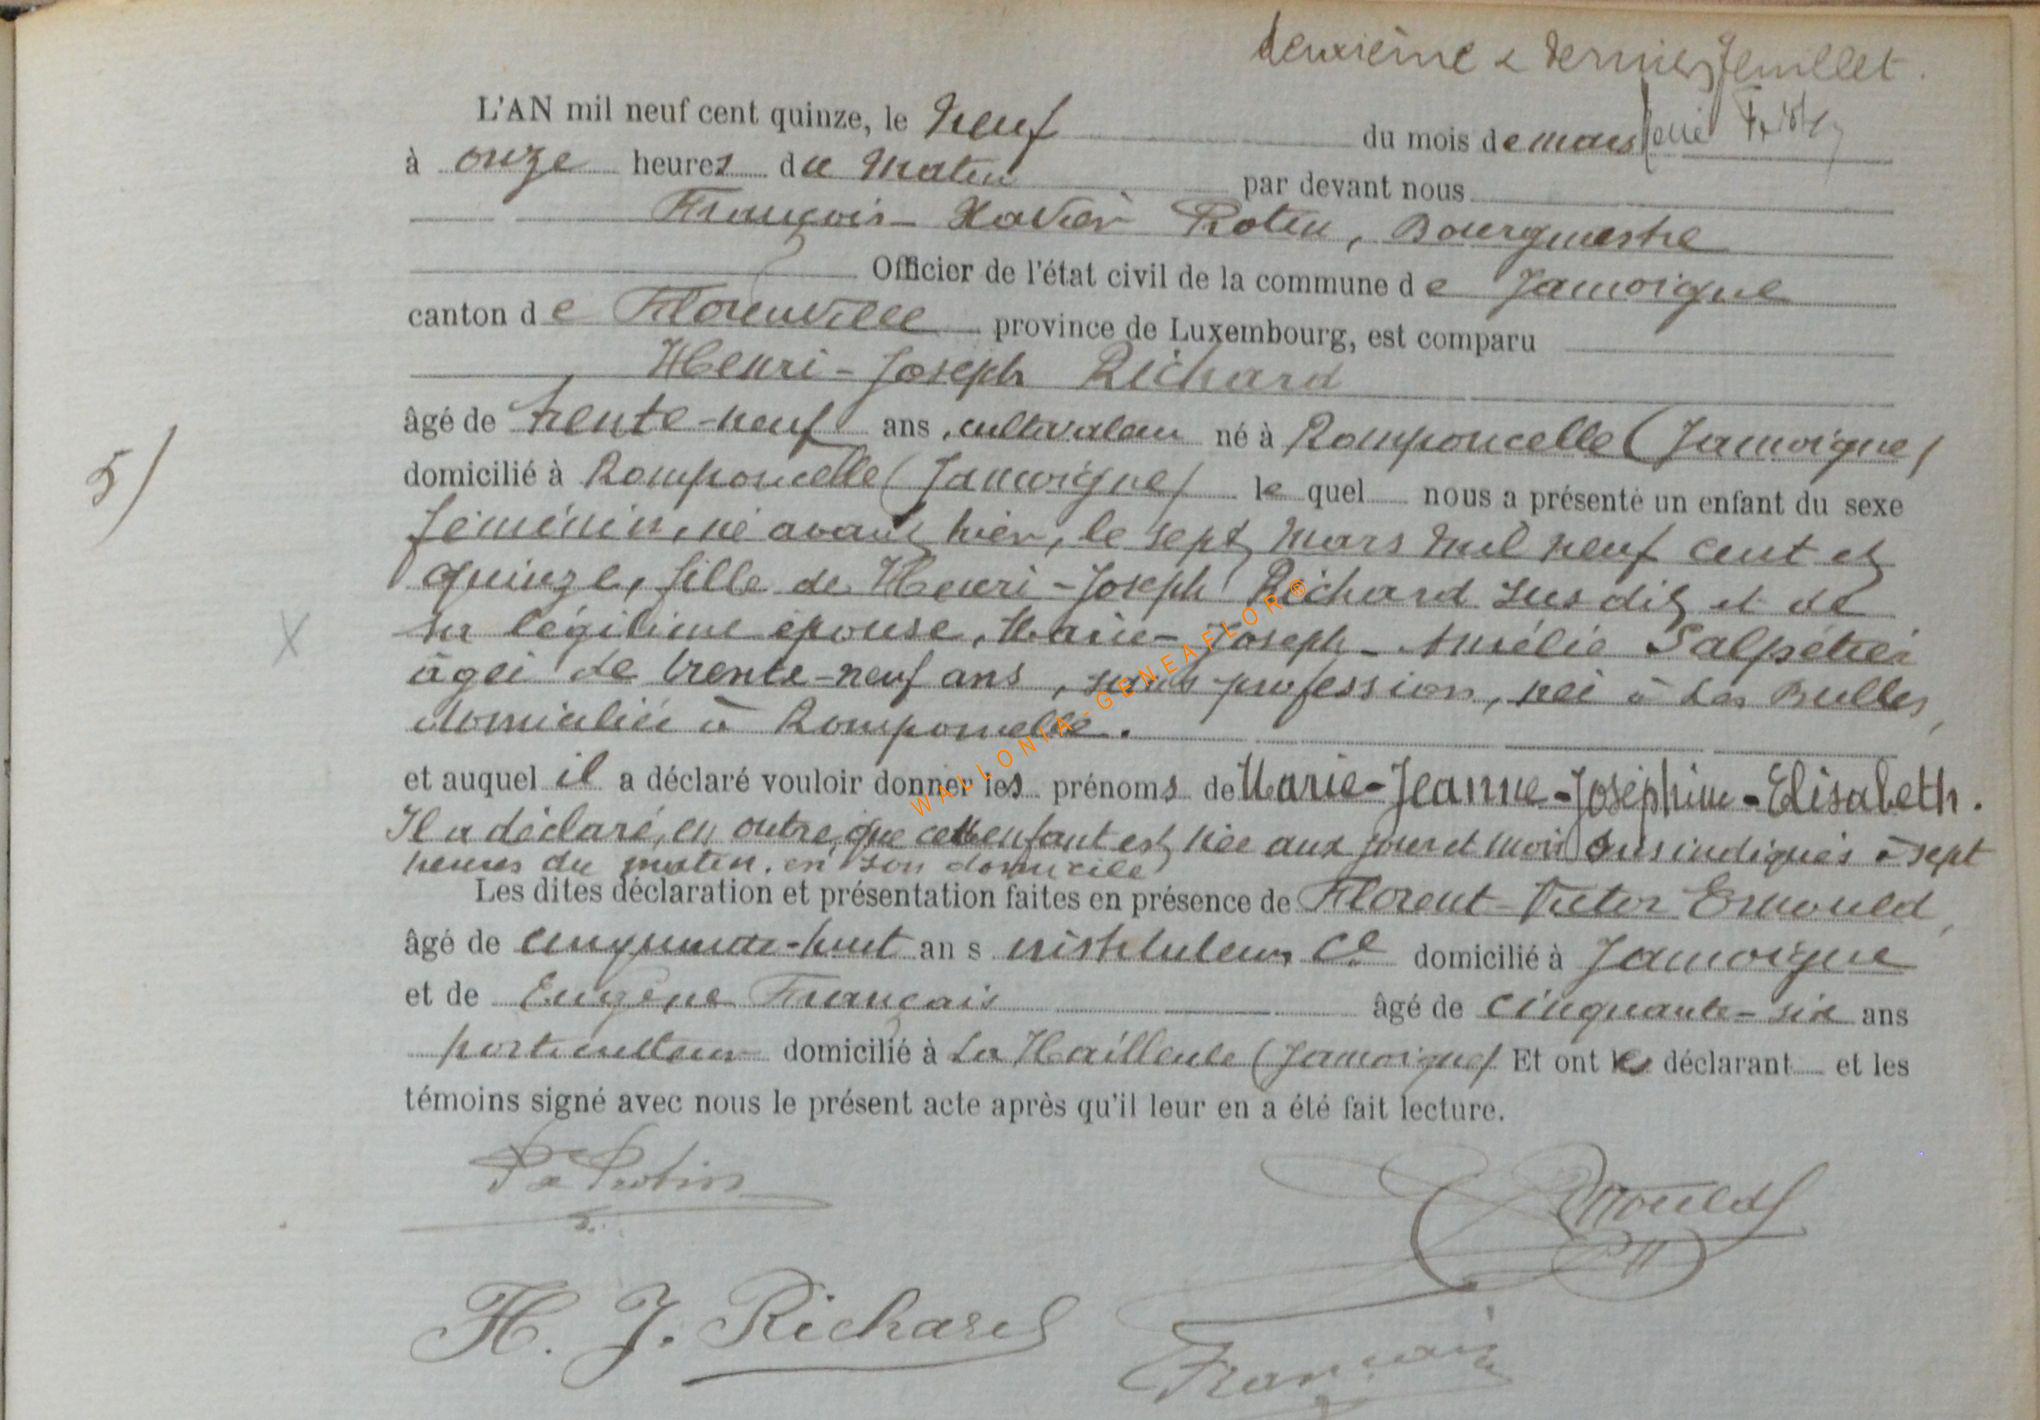 deuxième & dernier feuillet.
L'AN mil neuf cent quinze, le neuf du mois de mars
à onze heures du matin par devant nous
François-Xavier Rotin, Bourgmestre
Officier de l'état civil de la commune de Jamoigne
canton de Florenville province de Luxembourg, est comparu
Henri-Joseph Richard
âgé de trente-neuf ans, cultivateur né à Romponcelle (Jamoigne)
5/ domicilié à Romponcelle (Jamoigne) le quel nous a présenté un enfant du sexe
féminin, né avant hier, le sept mars mil neuf cent et
quinze, fille de Henri-Joseph Richard susdit et de
X sa légitime épouse, Marie-Joseph-Amélie Salpétier
âgée de trente-neuf ans, sans profession, née à Les Bulles,
domiciliée à Romponcelle.
et auquel il a déclaré vouloir donner les prénoms de Marie-Jeanne-Joséphine-Elisabeth.
Il a déclaré, en outre, que cet enfant est née aux jour et mois sus indiqués à sept
heures du matin, en son domicile
Les dites déclaration et présentation faites en présence de Florent-Victor Ernould,
âgé de cinquante-huit ans instituteur Cl domicilié à Jamoigne
et de Eugène Français âgé de cinquante-six ans
domicilié à La Hailleule (Jamoigne) Et ont le déclarant et les
témoins signé avec nous le présent acte après qu'il leur en a été fait lecture.
Ernould
H. J. Richard
Français
WALLONIA-GENEAFLOR®